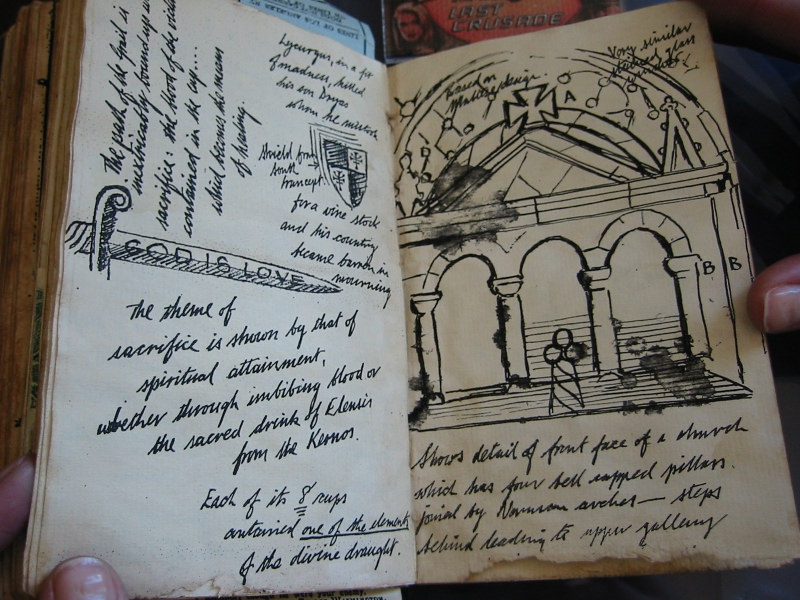 LAST
CRUSADE
The path of the Grail is
inextricably bound up
sacrifice: the blood of the
contained in the cup....
which becomes the means
of healing.
Lycurgus, in a fit
of madness, killed
his son Dryas
whom he mistook
for a vine stock
and his country
became barren in
mourning
Shield from
South
transept
GOD IS LOVE
The theme of
sacrifice is shown by that of
spiritual attainment,
whether through imbibing blood or
the sacred drink of Eleusis
from the Kernos.
Each of its 8 cups
contained one of the elements
of the divine draught.
based on
Very similar
stained glass
windows
A
B
B
Shows detail of front face of a church
which has four bell capped pillars.
joined by Norman arches — steps
behind leading to upper gallery